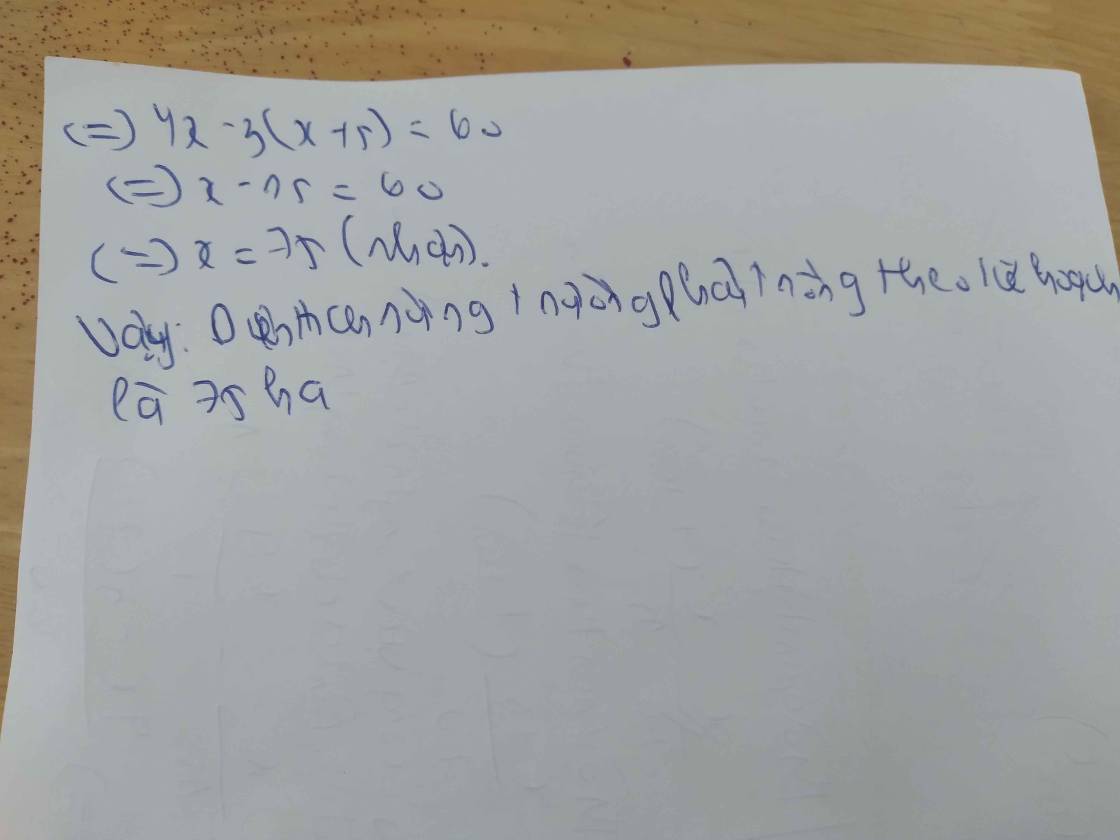 (=) 4x - 3(x+5) = 60
(=) x - 15 = 60
(=) x = 75 (nhận).
Vậy: Diện tích rừng trường phải trồng theo kế hoạch
là 75 ha